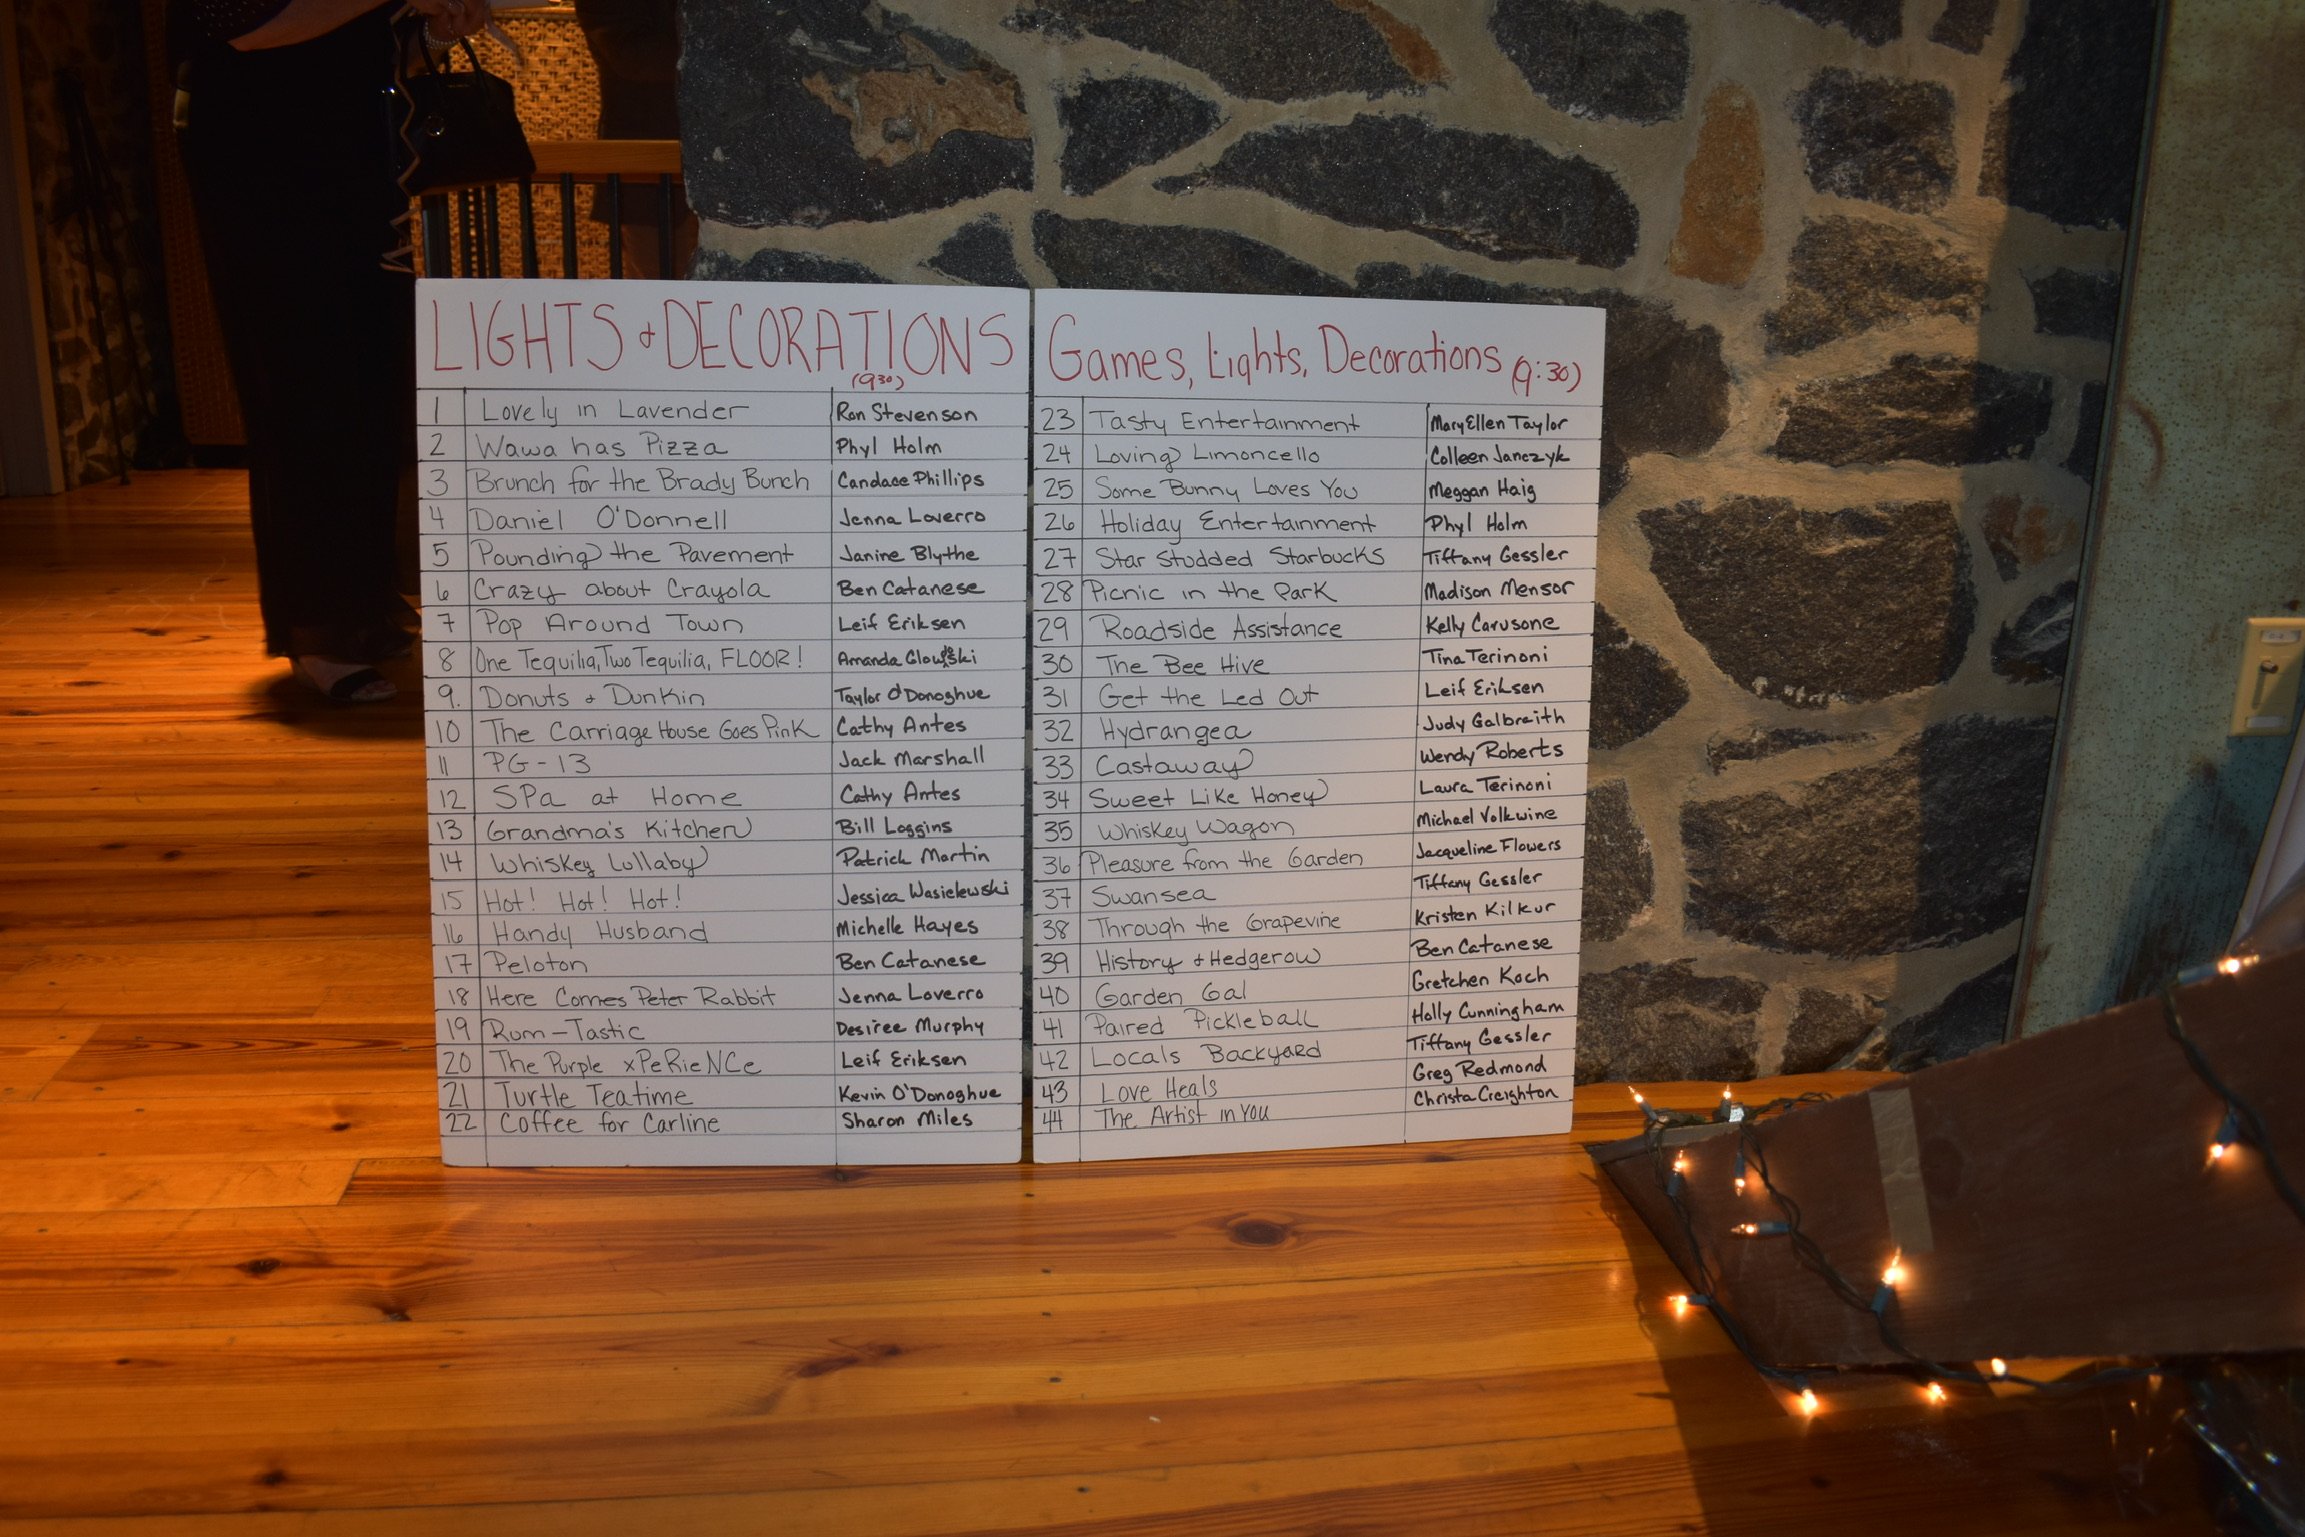 LIGHTS & DECORATIONS
(9:30)
1 Lovely in Lavender Ron Stevenson
2 Wawa has Pizza Phyl Holm
3 Brunch for the Brady Bunch Candace Phillips
4 Daniel O'Donnell Jenna Loverro
5 Pounding the Pavement Janine Blythe
6 Crazy about Crayola Ben Catanese
7 Pop Around Town Leif Eriksen
8 One Tequilia, Two Tequilia, FLOOR! Amanda
9. Donuts & Dunkin Taylor O'Donoghue
10 The Carriage House Goes Pink Cathy Antes
11 PG-13 Jack Marshall
12 SPa at Home Cathy Antes
13 Grandma's Kitchen Bill Loggins
14 Whiskey Lullaby Patrick Martin
15 Hot! Hot! Hot! Jessica Wasielewski
16 Handy Husband Michelle Hayes
17 Peloton Ben Catanese
18 Here Comes Peter Rabbit Jenna Loverro
19 Rum-Tastic Desiree Murphy
20 The Purple xPeRieNCe Leif Eriksen
21 Turtle Teatime Kevin O'Donoghue
22 Coffee for Carline Sharon Miles
Games, Lights, Decorations (9:30)
23 Tasty Entertainment MaryEllen Taylor
24 Loving Limoncello Colleen Janczyk
25 Some Bunny Loves You Meggan Haig
26 Holiday Entertainment Phyl Holm
27 Star Studded Starbucks Tiffany Gessler
28 Picnic in the Park Madison Mensor
29 Roadside Assistance Kelly Carusone
30 The Bee Hive Tina Terinoni
31 Get the Led Out Leif Eriksen
32 Hydrangea Judy Galbraith
33 Castaway Wendy Roberts
34 Sweet Like Honey Laura Terinoni
35 Whiskey Wagon Michael Volkwine
36 Pleasure from the Garden Jacqueline Flowers
37 Swansea Tiffany Gessler
38 Through the Grapevine Kristen Kilkur
39 History & Hedgerow Ben Catanese
40 Garden Gal Gretchen Koch
41 Paired Pickleball Holly Cunningham
42 Locals Backyard Tiffany Gessler
43 Love Heals Greg Redmond
44 The Artist in You Christa Creighton